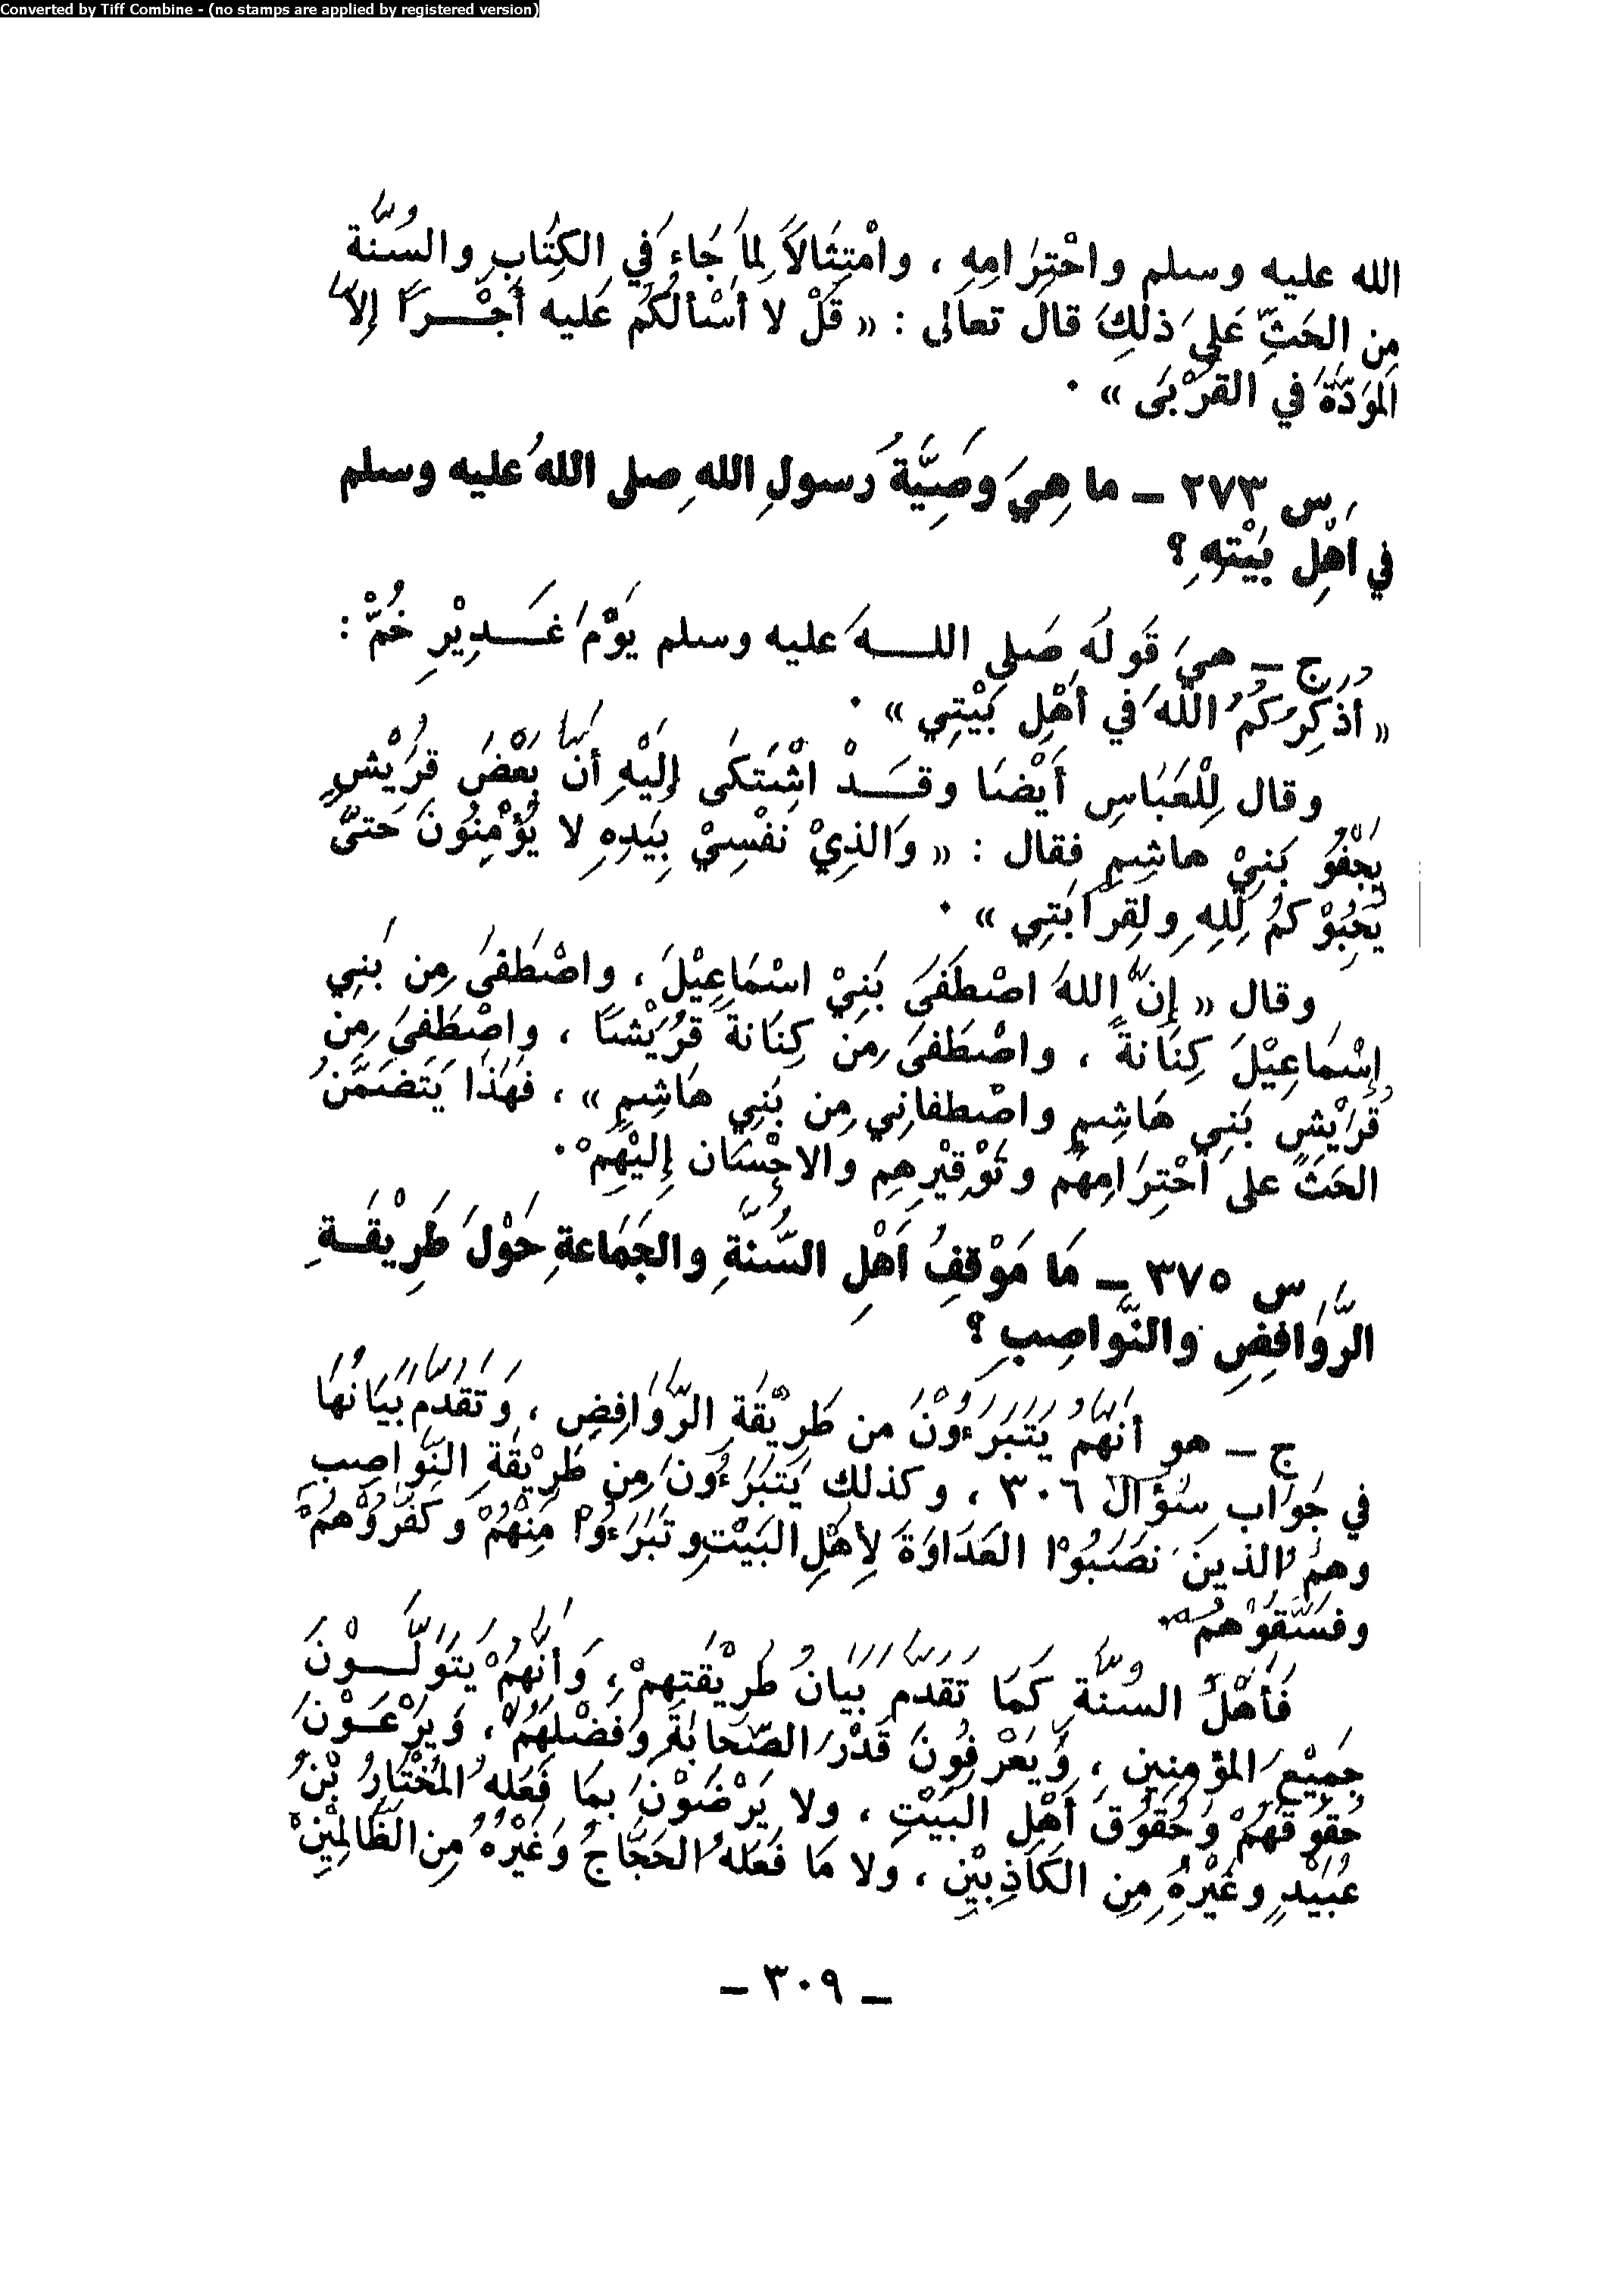 Converted by Tiff Combine - (no stamps are applied by registered version)
الله عليه وسلم واحْتِرَامِهِ ، وامْتِثَالاً لِمَا جَاءَ في الكِتَابِ والسُنَّة
مِن الحَثِّ عَلى ذلِكَ قالَ تعالى : « قُلْ لا أسْألُكُم عَليه أجْـــرًا إلاَّ
المَوَدَّةَ في القُرْبَى » .
س ٢٧٣ ــ ما هِيَ وصِيَّةُ رسولِ اللهِ صلى اللهُ عليه وسلم
في أهْلِ بَيْتِهِ ؟
ج ــ هيَ قَولَه صَلى اللــهُ عليه وسلم يَوْمَ غَــدِيْرِ خُمّْ :
« أُذَكِّرُكُمُ اللَّهَ في أَهْلِ بَيْتِي » .
وقال لِلْعَبَاسِ أَيْضَا وقَــدْ اشْتَكَى إِلَيْهِ أنَّ بَعْضَ قُرَيْشٍ
يَجْفُوَ بَنِيْ هاشِمٍ فقال : « وَالذِيْ نَفْسِيْ بِيَدِهِ لا يُؤْمِنُونَ حَتىَّ
يُحِبُوْكمُ لِلهِ ولِقِرَابَتِي » .
وقال « إِنَّ اللهَ اصْطَفَىَ بَنِيْ اسْمَاعِيْلَ ، واصْطَفىَ مِن بَنِي
إسْمَاعِيْلَ كِنَانةً ، واصْطَفىَ مِنَ كِنَانةَ قُرُيْشًا ، واصْطَفىَ مِن
قُرَيْشٍ بَنِي هَاشِمٍ واصْطفانِي مِن بَنِي هَاشِمٍ » ، فَهَذَا يَتَضَمَّنُ
الحَثَ على احْتِرَامِهُم وتَوْقِيْرِهِم والاحْسَان إلِيْهِمْ .
س ٣٧٥ ــ مَا مَوْقِفُ أهْلِ السُّنةِ والجَمَاعةِ حَوْلَ طَرِيْقَــةِ
الرَّوَافِضِ والنَّواصِبِ ؟
ج ــ هو أنَهُم يَتَبَرَءُوْنَ من طَرِيْقَةِ الرَّوَافِضِ ، وَتَقَدَّمَ بَيَانُهَا
في جَوَاب سُؤَال ٣٠٦ ، وكذلك يَتَبَرَءُونَ مِن طَرِيْقَةِ النَّوَاصِبِ
وهمُ الذينَ نصَبُوْا العَدَاوَةَ لِأهْلِ البَيْتِ وتَبَرَءُوْا مِنْهُمْ وَكَفَّرُوْهُمْ
وفسَّقوْهمُ .
فَأَهْلُ السُنَّة كَمَا تَقَدَّمَ بَيَانُ طَرِيْقَتِهِمْ ، وَأنَّهُمْ يتَوَلَّـــوْنَ
جَمِيْعَ المؤمِنِين ، وَيَعْرِفُونَ قَدْرَ الصَّحَابَةَ وفَضْلَهُمْ ، وَيَرْعَــوْنَ
حُقوُقَهُمْ وَحُقوُقَ أَهْلِ البَيْتِ ، ولا يَرْضَوْنَ بمَا فَعَله المُخْتَارُ بْنُ
عُبَيْدٍ وغَيْرُهُ مِن الكَاذِبِيْن ، ولا مَا فَعَلهُ الحَجَّاجُ وَغَيْرُهُ مِن الظَّالمِيْنْ
ــ ٣٠٩ ــ